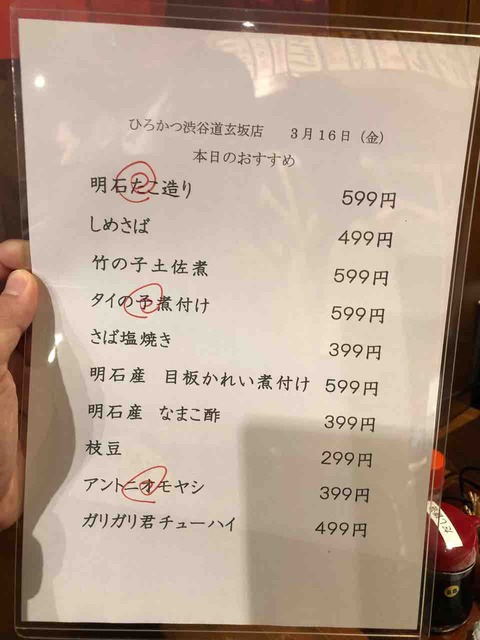 ひろかつ渋谷道玄坂店 3月16日（金）
本日のおすすめ
明石たこ造り 599円
しめさば 499円
竹の子土佐煮 599円
タイの子煮付け 599円
さば塩焼き 399円
明石産 目板かれい煮付け 599円
明石産 なまこ酢 399円
枝豆 299円
アントニオモヤシ 399円
ガリガリ君チューハイ 499円